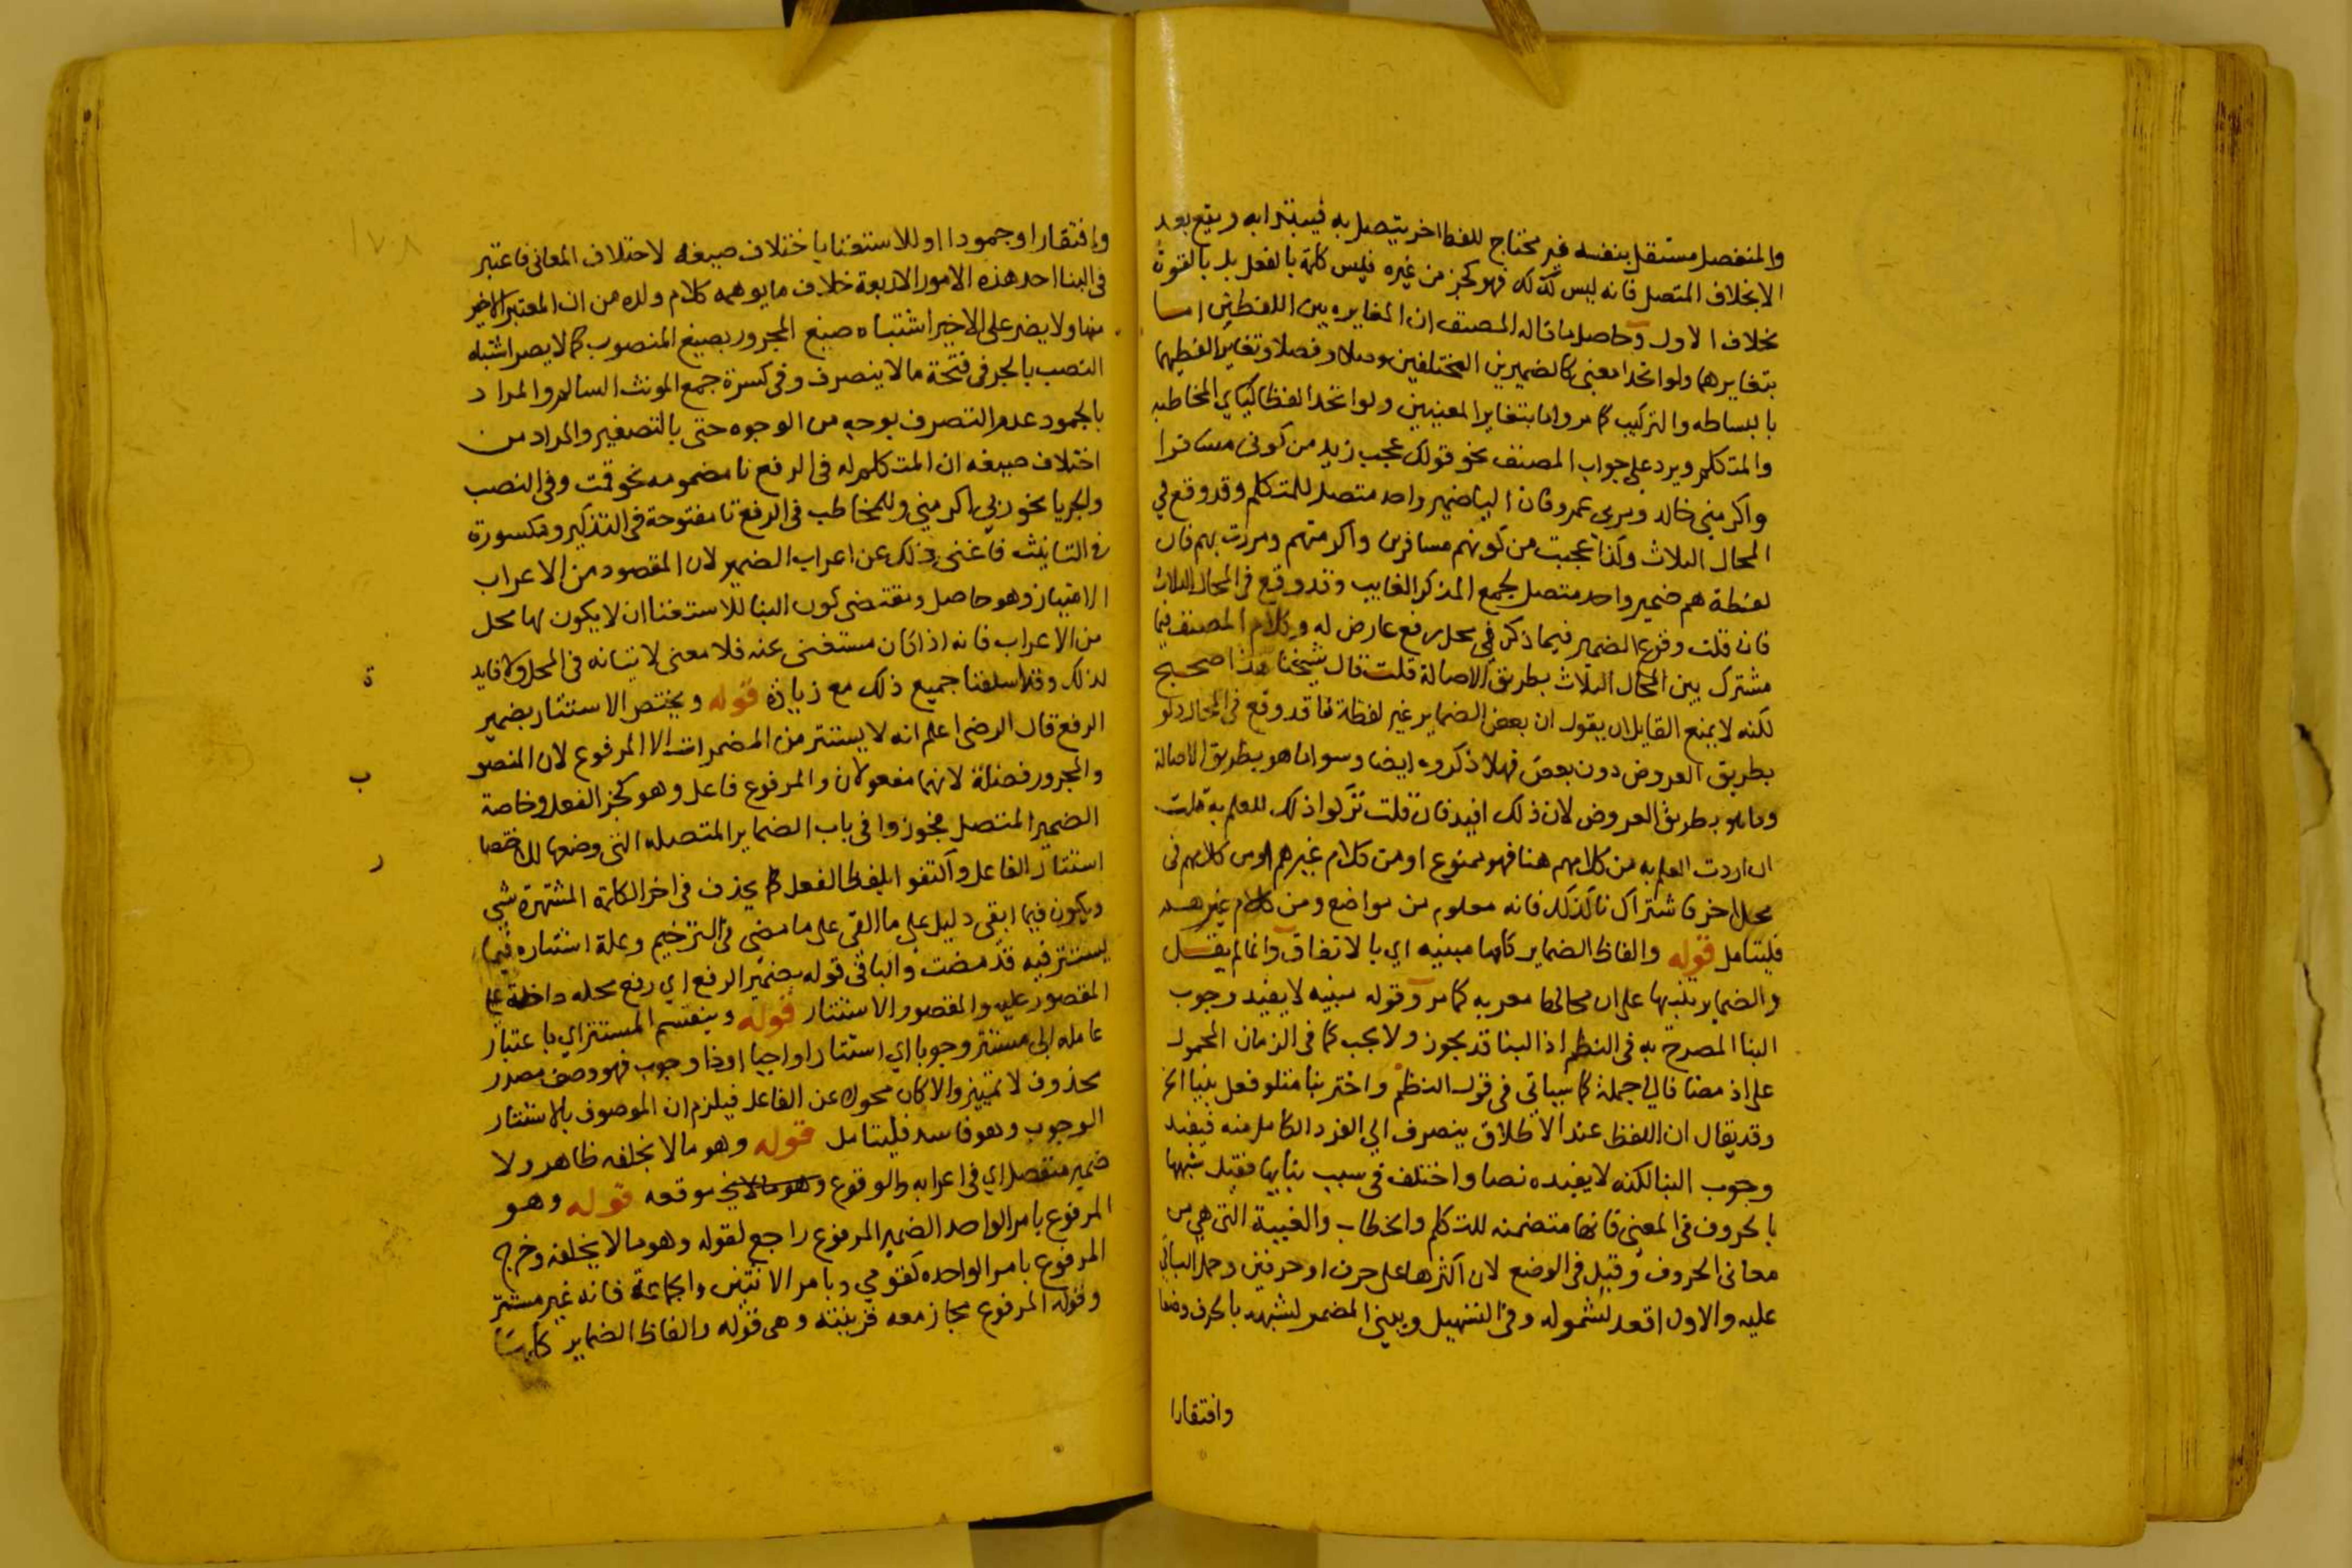 والمنفصل مستقل بنفسه غير محتاج للفظ اخر يتصل به فيبتدا به ويقع بعد
الا بخلاف المتصل فانه ليس كذلك فهو كجزء من غيره فليس كلمة بالفعل بل بالقوة
بخلاف الاول وحاصل ما قاله المصنف ان المغايره بين اللفظين اما
بتغايرهما ولو اتحدا معنى كالضميرين المختلفين وصلا وفصلا وتغاير لفظيهما
بالبساطه والتركيب كما مر واما بتغاير المعنيين ولو اتحد الفظا كيآي المخاطبه
والمتكلم ويرد على جواب المصنف نحو قولك عجب زيد من كونى مسافرا
واكرمنى خالد ومر بى عمرو فان اليا ضمير واحد متصل للمتكلم وقد وقع في
المحال الثلاث وكذا عجبت من كونهم مسافرين واكرمتهم ومررت بهم فان
لفظة هم ضمير واحد متصل لجمع المذكر الغايب وقد وقع فى المحال الثلاث
فان قلت وقوع الضمير فيما ذكر في محل رفع عارض له وكلام المصنف فيما
مشترك بين المحال الثلاث بطريق الاصالة قلت قال شيخنا هذا صحيح
لكنه لا يمنع القايل ان يقول ان بعض الضماير غير لفظة نا قد وقع فى المحال ولو
بطريق العروض دون بعض فهلا ذكروه ايضا وسوا ما هو بطريق الاصالة
وما هو بطريق العروض لان ذلك افيد فان قلت تركوا ذلك للعلم به قلت
ان اردت العلم به من كلامهم هنا فهو ممنوع او من كلام غيرهم او من كلامهم فى
محل اخر فاشتراك نا كذلك فانه معلوم من مواضع ومن كلام غيرهم
فليتامل قوله والفاظ الضماير كلها مبنيه اي بالاتفاق وانما لم يقل
والضماير تنبيها على ان محالها معربه كما مر وقوله مبنيه لا يفيد وجوب
البنا المصرح به فى النظم اذ البنا قد يجوز ولا يجب كما فى الزمان المحمول
على اذ مضافا الى جملة كما سياتي فى قول النظم واختر بنا متلو فعل بنيا الخ
وقد يقال ان اللفظ عند الاطلاق ينصرف الي الفرد الكامل منه فيفيد
وجوب البنا لكنه لا يفيده نصا واختلف فى سبب بنايها فقيل شبهها
بالحروف فى المعنى فانها متضمنه للتكلم والخطاب والغيبة التى هي من
معانى الحروف وقيل فى الوضع لان اكثرها على حرف او حرفين وحمل الباقي
عليه والاول اقعد لشموله وفى التسهيل وبني المضمر لشبهه بالحرف وضعا
وافتقارا
١٧٨
وافتقارا وجمودا او للاستغنا باختلاف صيغه لاختلاف المعانى فاعتبر
فى البنا احد هذه الامور الاربعة خلاف ما يوهمه كلام ولده من ان المعتبر الاخير
منها ولا يضر على الاخير اشتباه صيغ المجرور بصيغ المنصوب كما لا يضر اشتباه
النصب بالجر فى فتحة ما لا ينصرف وفى كسرة جمع المونث السالم والمراد
بالجمود عدم التصرف بوجه من الوجوه حتى بالتصغير والمراد من
اختلاف صيغه ان المتكلم له فى الرفع تا مضمومه نحو قمت وفى النصب
والجر يا نحو زبي اكرمني وللمخاطب فى الرفع تا مفتوحة فى التذكير ومكسورة
فى التانيث فاغنى ذلك عن اعراب الضمير لان المقصود من الاعراب
الامتياز وهو حاصل ومقتضى كون البنا للاستغنا ان لا يكون لها محل
من الاعراب فانه اذا كان مستغنى عنه فلا معنى لاتيانه فى المحل ولا فايد
ة
لذلك وقد اسلفنا جميع ذلك مع زيادة قوله ويختص الاستتار بضمير
الرفع قال الرضى اعلم انه لا يستتر من المضمرات الا المرفوع لان المنصو
ب
والمجرور فضلة لانهما مفعولان والمرفوع فاعل وهو كجزء الفعل وخاصة
الضمير المتصل فجوزوا فى باب الضماير المتصله التى وضعها للاختصا
ر
استتار الفاعل واكتفوا بلفظ الفعل كما يحذف فى اخر الكلمة المشتهرة شي
ويكون فيما ابقى دليل على ما القى على ما مضى فى الترخيم وعلة استتاره فيما
يستتر فيه قد مضت والباقى قوله بضمير الرفع اي رفع محله داخلة على
المقصور عليه والمقصور الاستتار قوله وينقسم المستتر اي باعتبار
عامله الى مستتر وجوبا اي استتارا واجبا او ذا وجوب فهو وصف مصدر
محذوف لا تمييز والا كان محولا عن الفاعل فيلزم ان الموصوف بالاستتار
الوجوب وهو فاسد فليتامل قوله وهو ما لا يخلفه ظاهر ولا
ضمير منفصل اي فى اعرابه والوقوع فى موقعه قوله وهو
المرفوع بامر الواحد الضمير المرفوع راجع لقوله وهو ما لا يخلفه وخرج
المرفوع بامر الواحده كقومي وبامر الاثنين والجماعة فانه غير مستتر
وقوله المرفوع مجاز معه قرينته وهى قوله والفاظ الضماير كلها